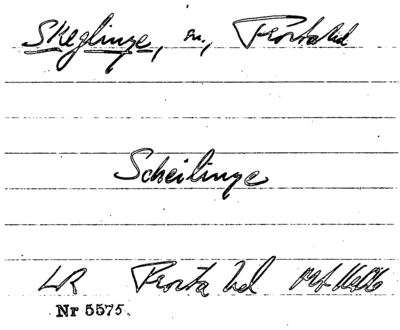 Skeglinge, sn, Frosta hd
Scheilinge
LR Frosta hd
Nr 5575.